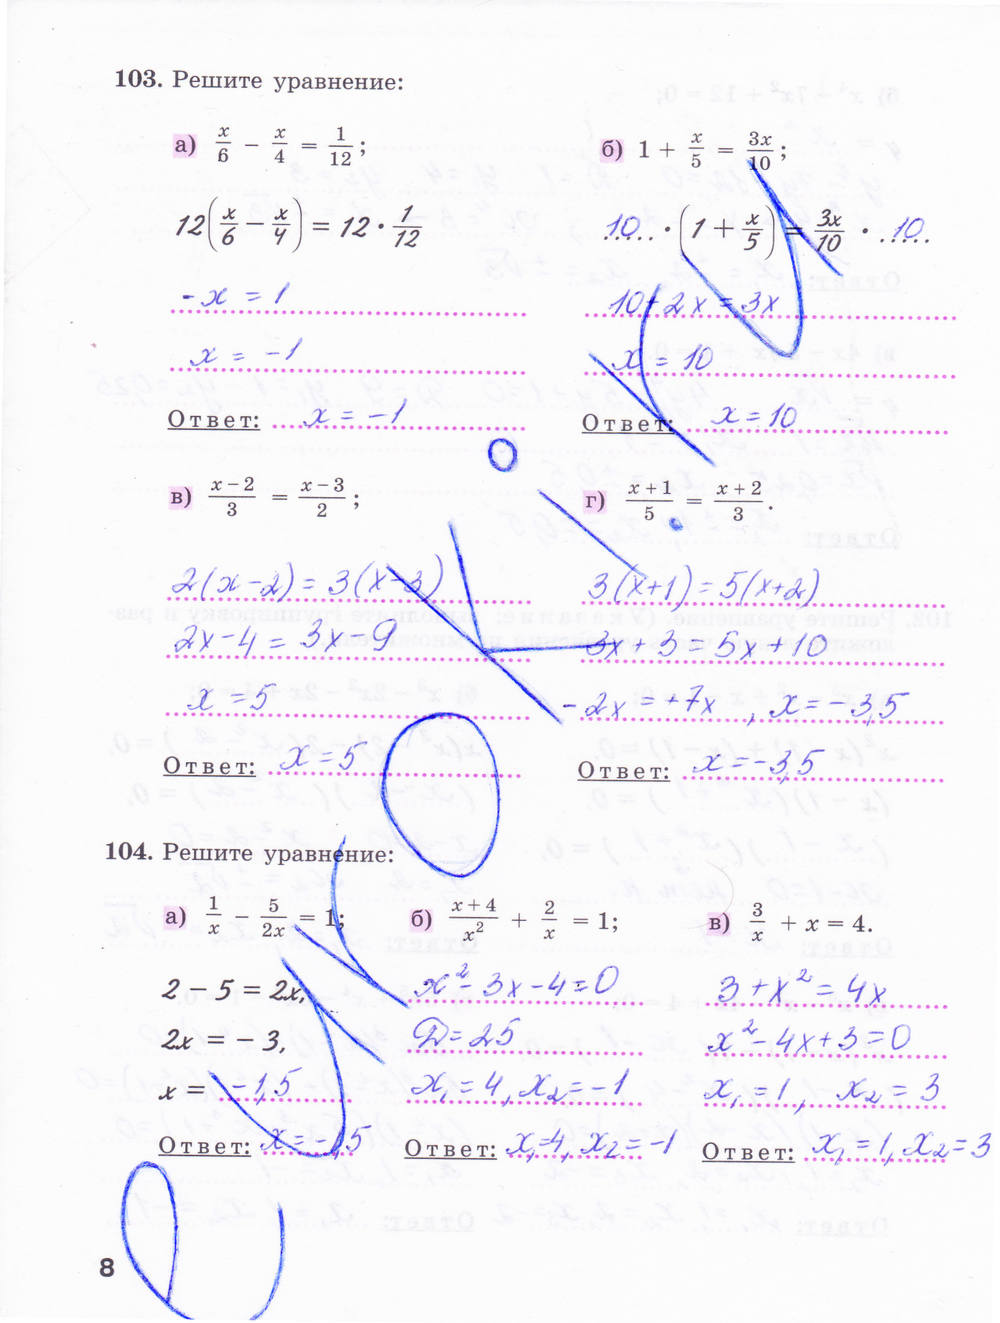 103. Решите уравнение:
а) x/6 − x/4 = 1/12;
12(x/6 − x/4) = 12 · 1/12
-x = 1
x = -1
Ответ: x = -1
б) 1 + x/5 = 3x/10;
10 · (1 + x/5) = 3x/10 · 10
10+2x = 3x
x = 10
Ответ: x = 10
в) x − 2/3 = x − 3/2;
2(x-2) = 3(x-3)
2x-4 = 3x-9
x = 5
Ответ: x = 5
г) x + 1/5 = x + 2/3.
3(x+1) = 5(x+2)
3x + 3 = 5x + 10
-2x = +7x , x = -3,5
Ответ: x = -3,5
104. Решите уравнение:
а) 1/x − 5/2x = 1;
2 − 5 = 2x,
2x = − 3,
x = -1,5
Ответ: x = -1,5
б) x + 4/x² + 2/x = 1;
x² - 3x - 4 = 0
D = 25
x₁ = 4, x₂ = -1
Ответ: x₁=4, x₂ = -1
в) 3/x + x = 4.
3 + x² = 4x
x² - 4x + 3 = 0
x₁ = 1, x₂ = 3
Ответ: x₁ = 1, x₂ = 3
8